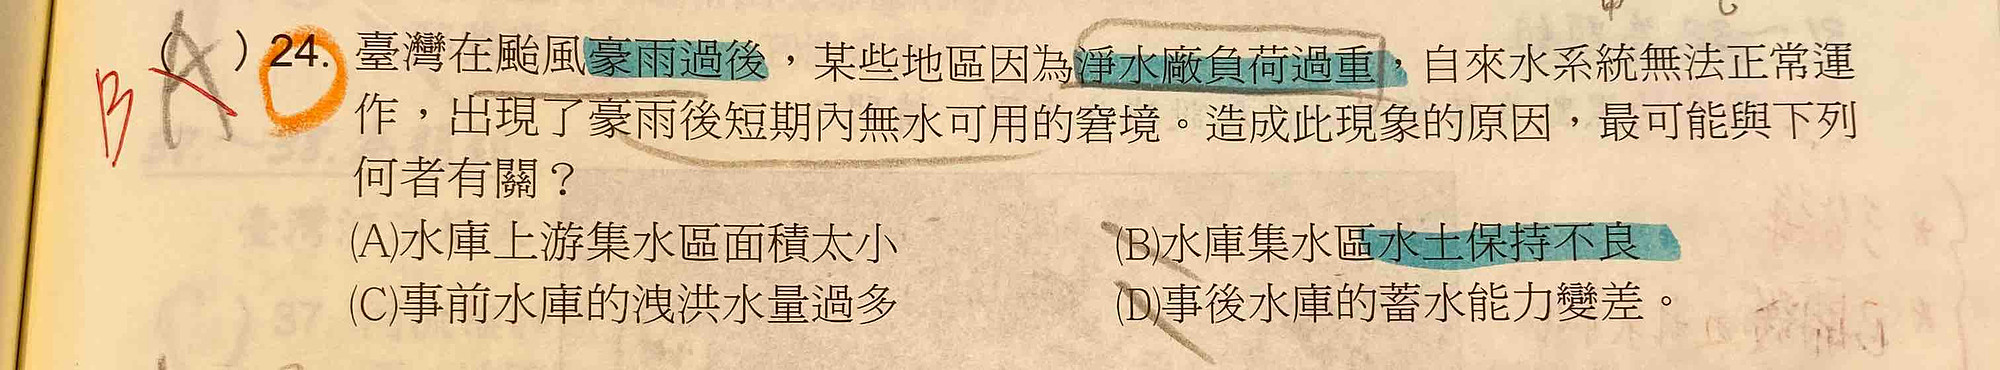 B
(A)24.臺灣在颱風豪雨過後，某些地區因為淨水廠負荷過重，自來水系統無法正常運
作，出現了豪雨後短期內無水可用的窘境。造成此現象的原因，最可能與下列
何者有關？
(A)水庫上游集水區面積太小 (B)水庫集水區水土保持不良
(C)事前水庫的洩洪水量過多 (D)事後水庫的蓄水能力變差。